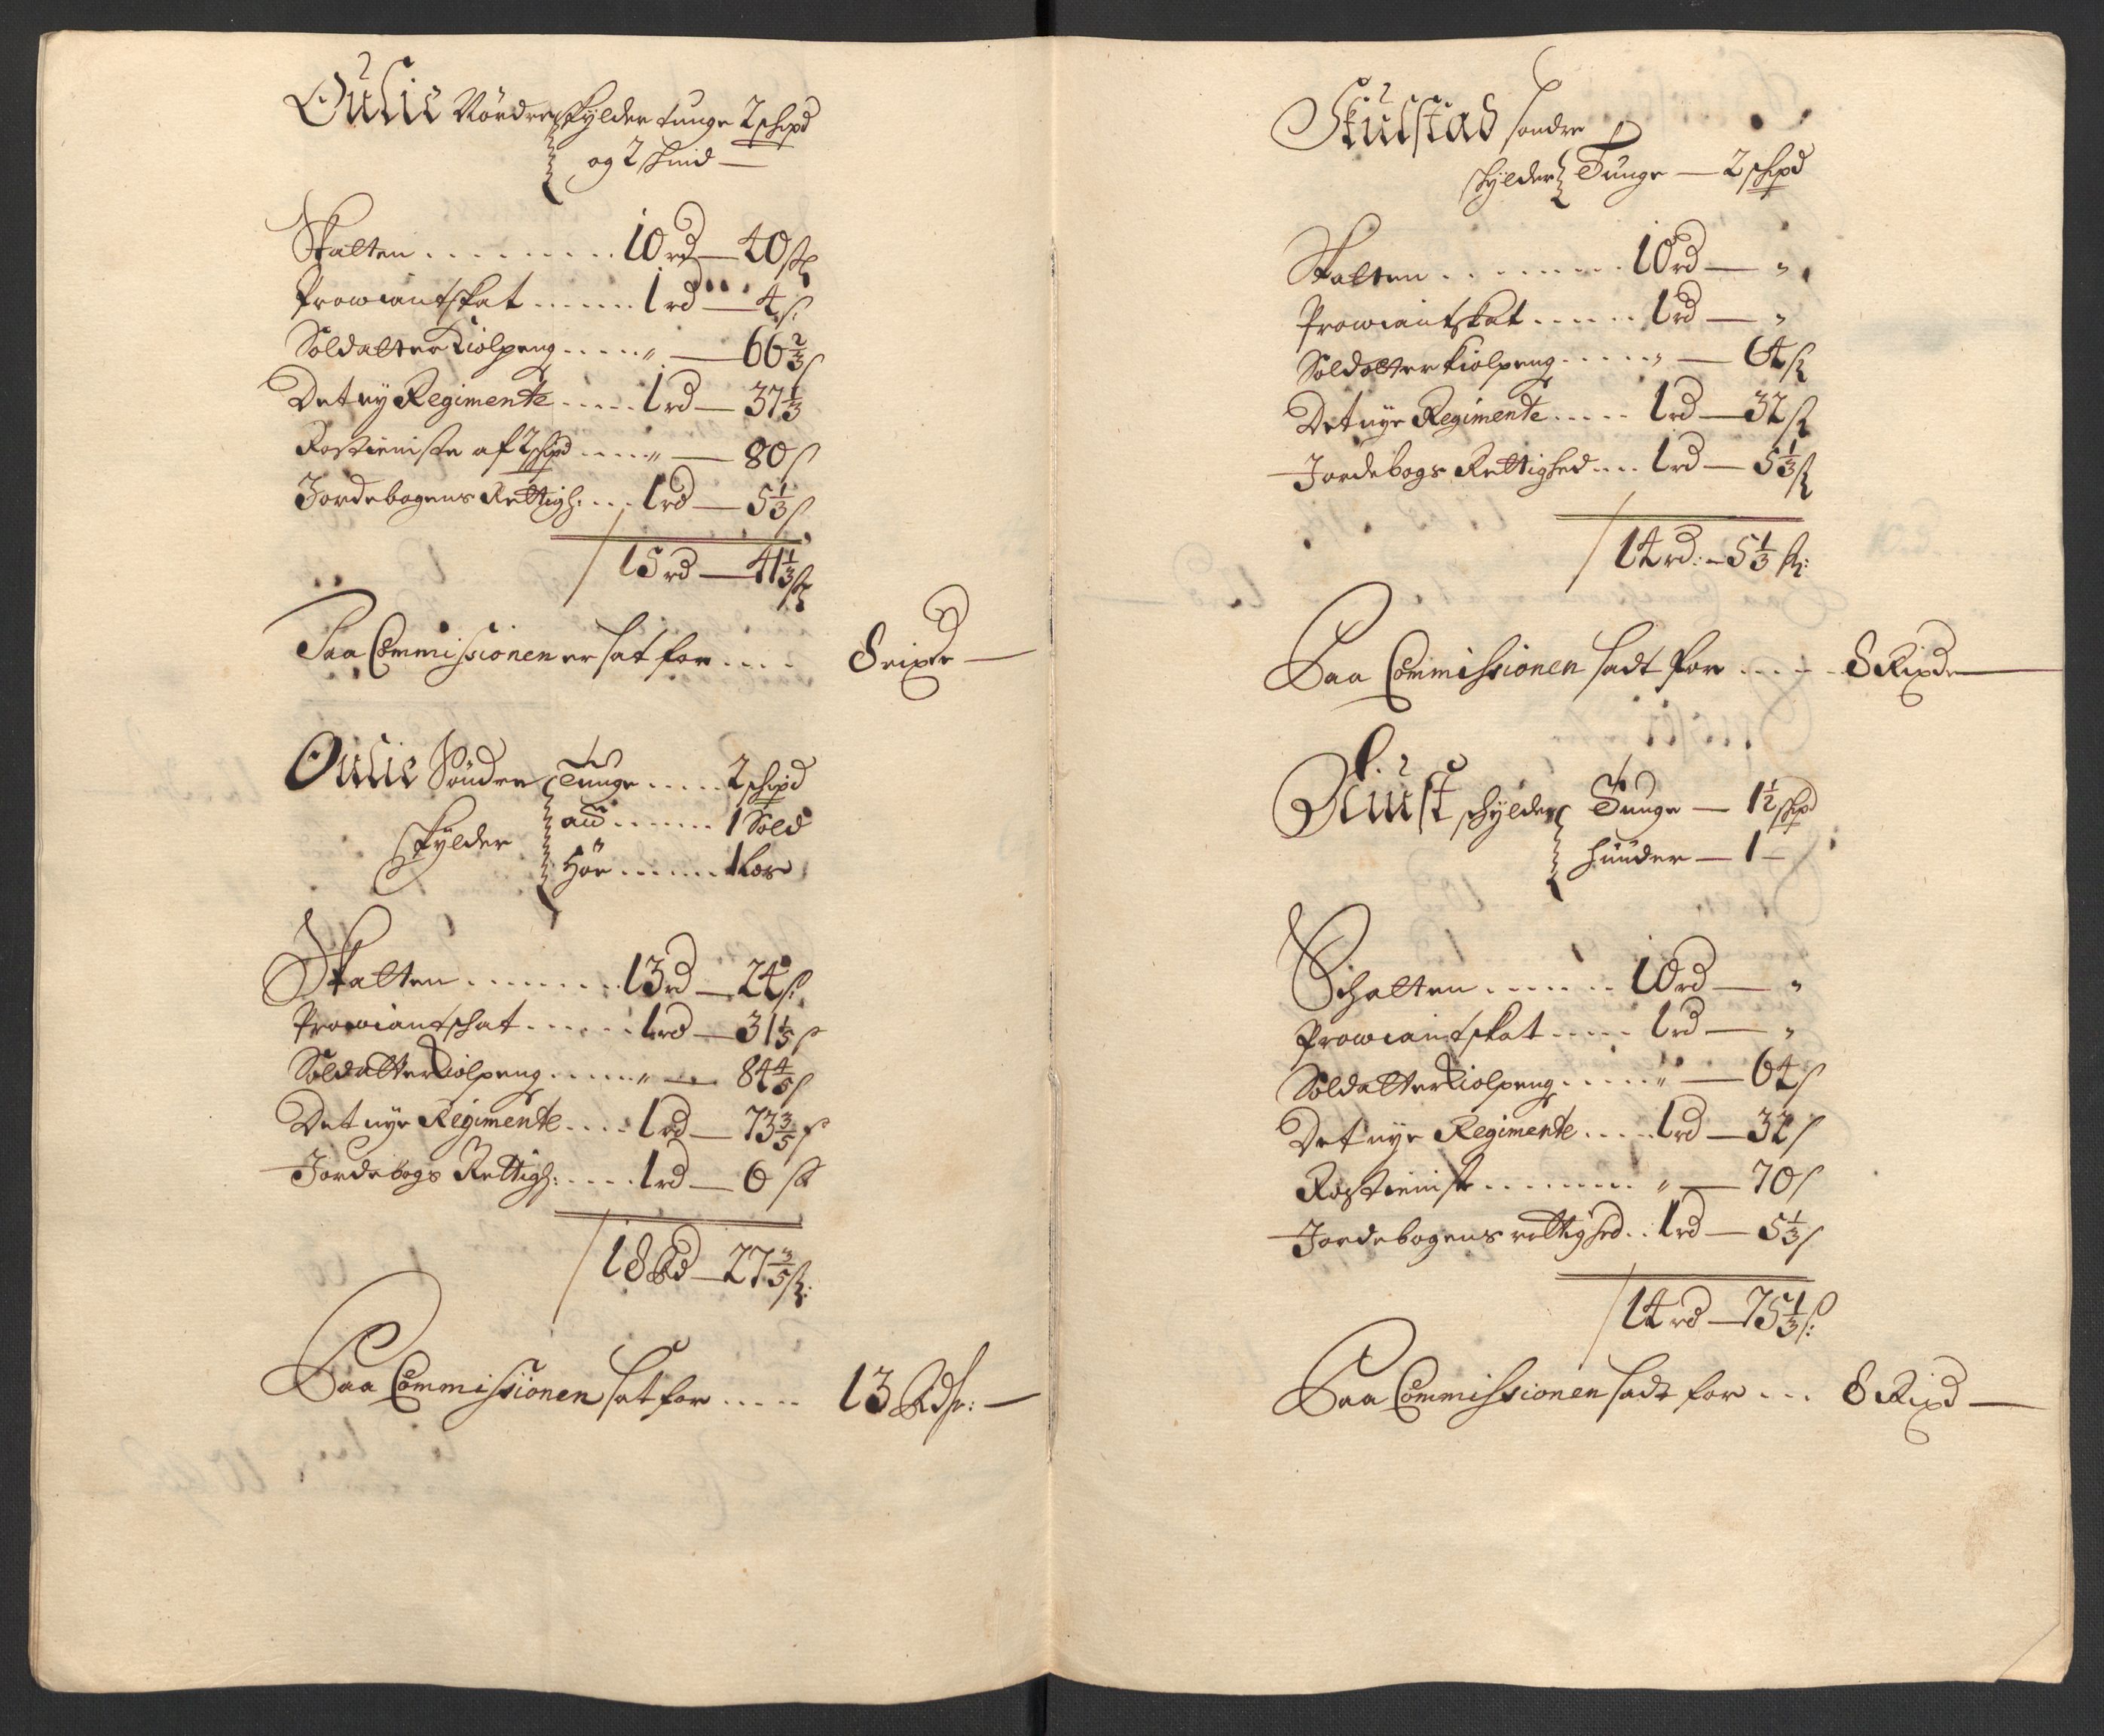 Oulie Nordre skylder tunge 2 schpd
og 2 hud —
Skatten . . . . . . . . . 10 rd — 40 sk
Prowiantskat . . . . . . 1 rd — 4 s:
Soldatter Kiolpeng . . . . . „ — 66 2/3 s
Det ny Regimente . . . . . 1 rd — 37 1/3
Rostieniste af 2 schpd . . . . . „ — 80 s
Jordebogens Rettigh: . . . 1 rd — 5 1/3 s
15 rd — 41 1/3 sk
Saa Commissionen er sat for . . . . 8 rixdr —
Oulie Söndre Tunge . . . . . 2 schpd
skylder
aü . . . . . . . 1 Sold
Höe . . . . . . 1 Læs
Skatten . . . . . . . . 13 rd — 24 s:
Prowiantschat . . . . . . 1 rd — 31 1/5 s
Soldatter Kiolpeng . . . . . „ — 84 4/5 s
Det nye Regimente . . . . 1 rd — 73 3/5 s
Jordebogs Rettigh: . . . . . 1 rd — 6 sk
18 Rd — 27 3/5 sk:
Saa Commissionen sat for . . . . . 13 Rdr: —
Skülstad søndre
skylder Tunge — 2 schpd
Skatten . . . . . . . . . 10 rd — „
Prowiantskat . . . . . . 1 rd — „
Soldatter Kiolpeng . . . . . „ — 64 sk
Det nye Regimente . . . . . 1 rd — 32 sk
Jordebogs Rettighed . . . 1 rd — 5 1/3 sk
14 rd: — 5 1/3 sk:
Saa Commissionen sadt for . . . . . 8 Rixdr —
Rüst schylder Tunge — 1 1/2 schpd
hüüder — 1 —
Schatten . . . . . . . 10 rd — „
Prowiantskat . . . . . 1 rd — „
Soldatter Kiolpeng . . . . . „ — 64 s
Det nye Regimente . . . . . 1 rd — 32 s
Rostieniste . . . . . . . . . „ — 70 s
Jordebogens rettighed . . 1 rd — 5 1/3 s
14 rd — 75 1/3 s:
Saa Commissionen sadt for . . . 8 Rixd —